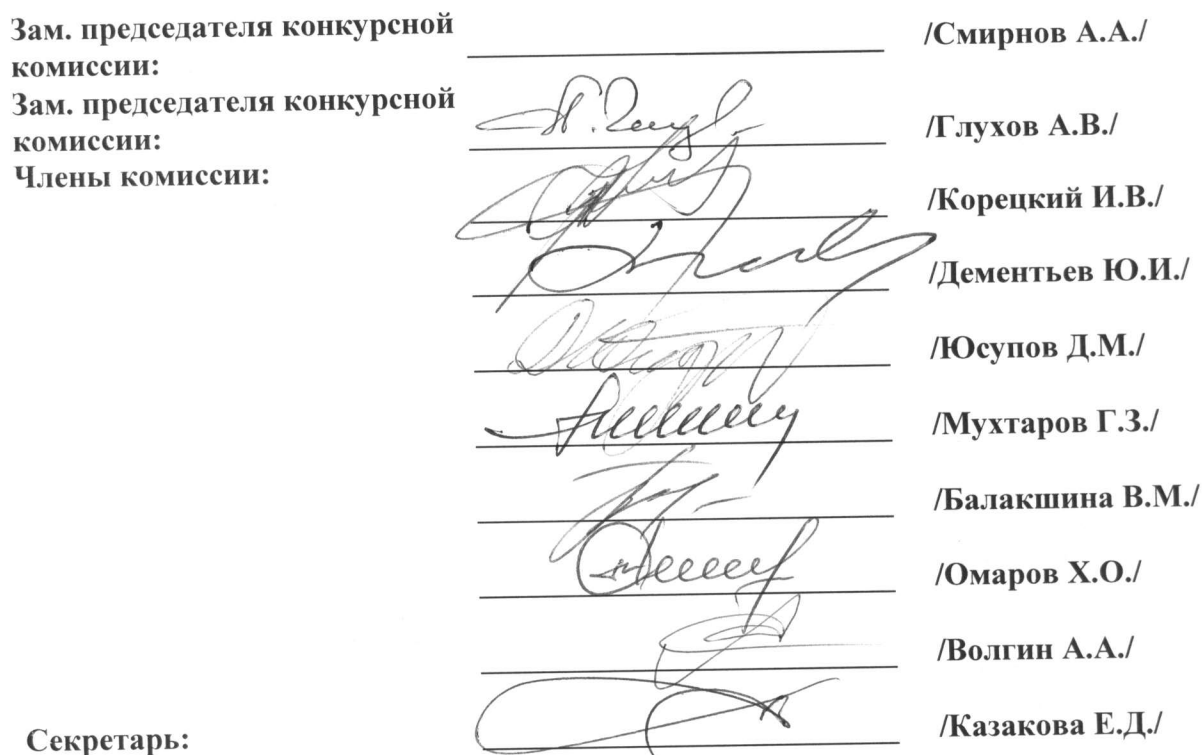 Зам. председателя конкурсной
комиссии: /Смирнов А.А./
Зам. председателя конкурсной
комиссии: /Глухов А.В./
Члены комиссии:
/Корецкий И.В./
/Дементьев Ю.И./
/Юсупов Д.М./
/Мухтаров Г.З./
/Балакшина В.М./
/Омаров Х.О./
/Волгин А.А./
Секретарь: /Казакова Е.Д./